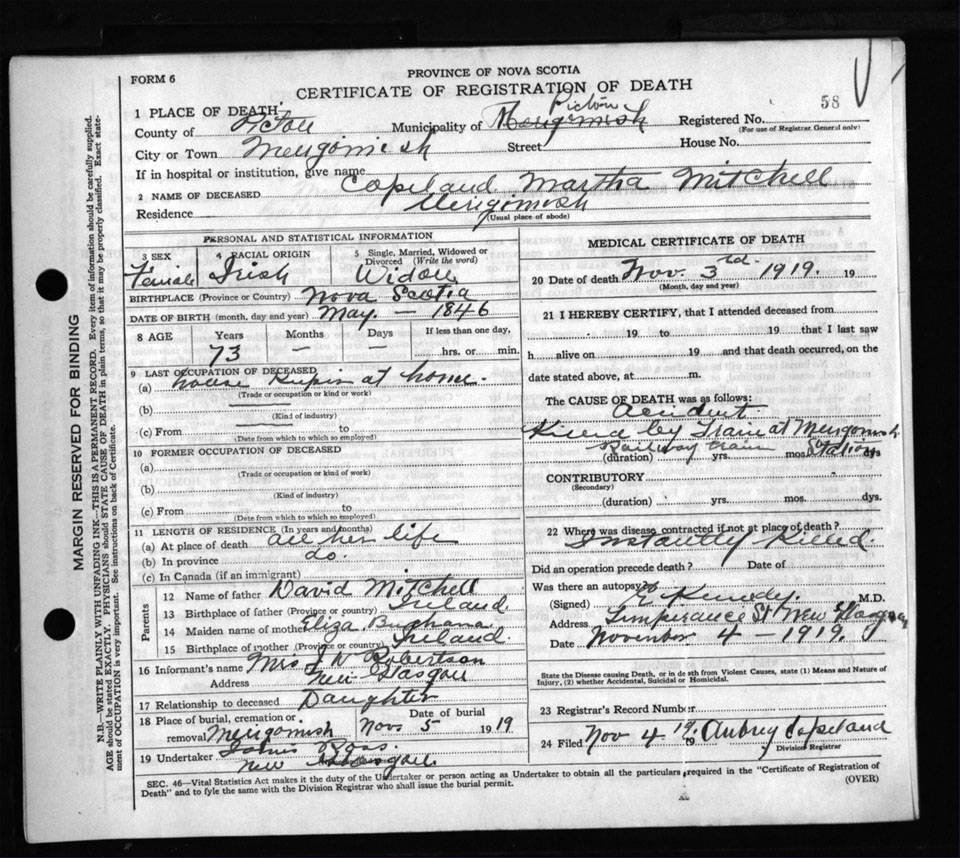 FORM 6
PROVINCE OF NOVA SCOTIA
CERTIFICATE OF REGISTRATION OF DEATH
58
1 PLACE OF DEATH
County of Pictou Municipality of Merigomish Pictou Registered No.
(For use of Registrar General only)
City or Town Merigomish Street House No.
If in hospital or institution, give name
2 NAME OF DECEASED Copeland Martha Mitchell
Residence Merigomish
(Usual place of abode)
PERSONAL AND STATISTICAL INFORMATION
3 SEX Female
4 RACIAL ORIGIN Irish
5 Single, Married, Widowed or Divorced (Write the word) Widow
BIRTHPLACE (Province or Country) Nova Scotia
DATE OF BIRTH (month, day and year) May — 1846
8 AGE Years 73 Months — Days — If less than one day, hrs. or min.
9 LAST OCCUPATION OF DECEASED
(a) house Kupin at home.
(Trade or occupation or kind of work)
(b)
(Kind of industry)
(c) From to
(Date from which to which so employed)
10 FORMER OCCUPATION OF DECEASED
(a)
(Trade or occupation or kind of work)
(b)
(Kind of industry)
(c) From to
(Date from which to which so employed)
11 LENGTH OF RESIDENCE (In years and months)
(a) At place of death all her life
(b) In province do.
(c) In Canada (if an immigrant)
Parents
12 Name of father David Mitchell
13 Birthplace of father (Province or country) Ireland
14 Maiden name of mother Eliza Buchana
15 Birthplace of mother (Province or country) Ireland.
16 Informant's name Mrs J W Robertson
Address New Glasgow
17 Relationship to deceased Daughter
18 Place of burial, cremation or removal Merigomish Date of burial Nov 5 1919
19 Undertaker Ross.
New Glasgow
MEDICAL CERTIFICATE OF DEATH
20 Date of death Nov. 3rd. 1919. 19
(Month, day and year)
21 I HEREBY CERTIFY, that I attended deceased from
19 to 19 that I last saw
h alive on 19 and that death occurred, on the
date stated above, at m.
The CAUSE OF DEATH was as follows:
Accident.
Killed by Train at Merigomish
Railway Train Station
(duration) yrs. mos. dys.
CONTRIBUTORY
(Secondary)
(duration) yrs. mos. dys.
22 Where was disease contracted if not at place of death?
Instantly Killed.
Did an operation precede death? Date of
Was there an autopsy?
(Signed) E Kennedy. M.D.
Address Temperance St New Glasgow
Date November 4 — 1919.
State the Disease causing Death, or in death from Violent Causes, state (1) Means and Nature of Injury, (2) whether Accidental, Suicidal or Homicidal.
23 Registrar's Record Number
24 Filed Nov 4 19 19 Aubrey Copeland
Division Registrar
SEC. 46—Vital Statistics Act makes it the duty of the Undertaker or person acting as Undertaker to obtain all the particulars required in the "Certificate of Registration of
Death" and to fyle the same with the Division Registrar who shall issue the burial permit. (OVER)
MARGIN RESERVED FOR BINDING
N.B.—WRITE PLAINLY WITH UNFADING INK—THIS IS A PERMANENT RECORD. Every item of information should be carefully supplied.
AGE should be stated EXACTLY. PHYSICIANS should STATE CAUSE OF DEATH in plain terms, so that it may be properly classified. Exact state-
ment of OCCUPATION is very important. See instructions on back of Certificate.